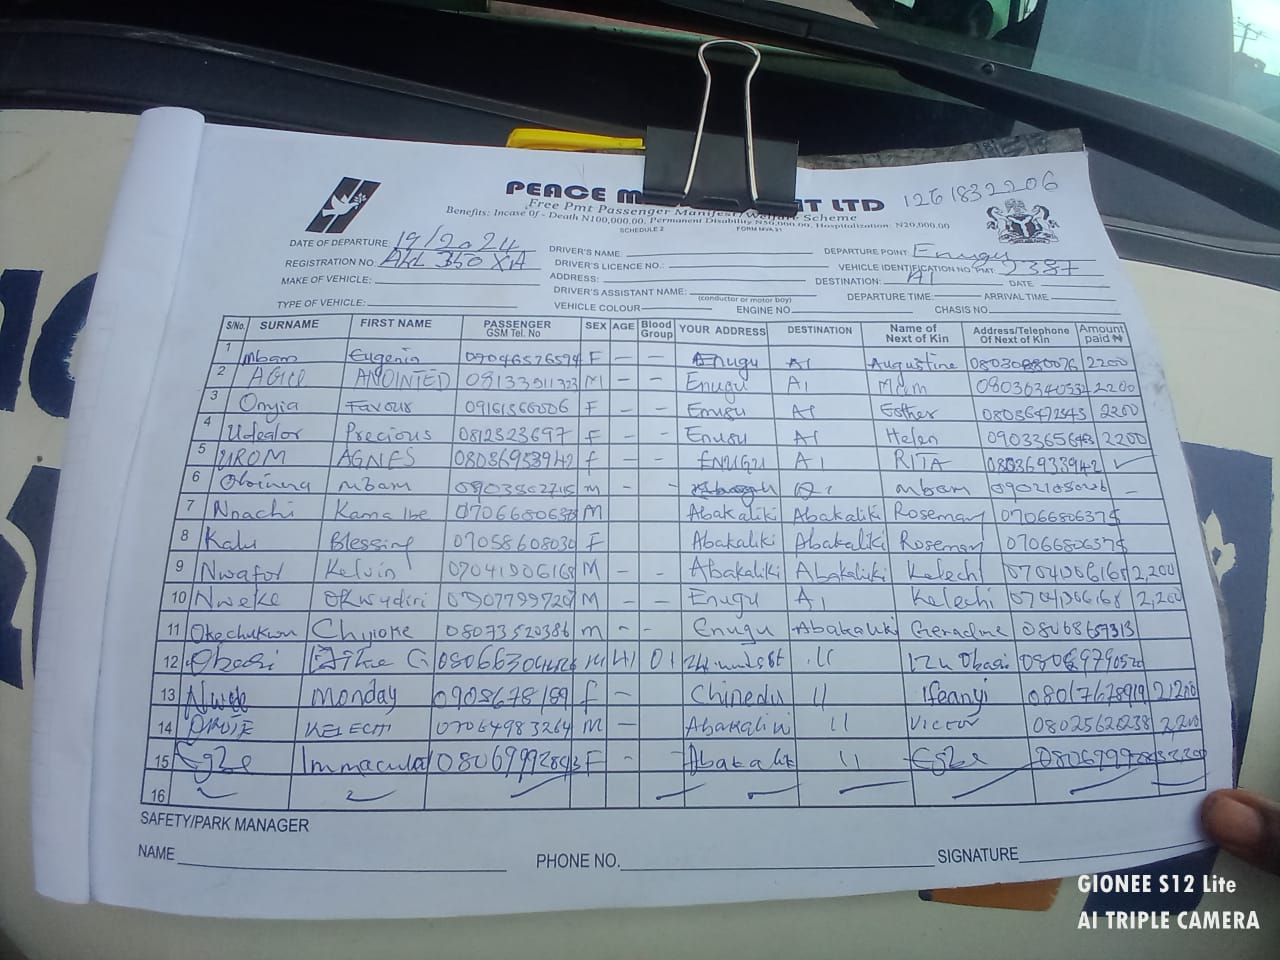 PEACE M NT LTD 1261832206
Free Pmt Passenger Manifest/Welfare Scheme
Benefits: Incase Of - Death N100,000.00, Permanent Disability N50,000.00, Hospitalization: N20,000.00
SCHEDULE 2 FORM MVA 31
DATE OF DEPARTURE: 19/2024 DRIVER'S NAME: DEPARTURE POINT: Enugu
REGISTRATION NO: 350 XA DRIVER'S LICENCE NO.: VEHICLE IDENTIFICATION NO. PMT: 2387
MAKE OF VEHICLE: ADDRESS: DESTINATION: AI DATE
DRIVER'S ASSISTANT NAME: (conductor or motor boy) DEPARTURE TIME: ARRIVAL TIME
TYPE OF VEHICLE: VEHICLE COLOUR ENGINE NO CHASIS NO.
S/No. SURNAME FIRST NAME PASSENGER GSM Tel. No SEX AGE Blood Group YOUR ADDRESS DESTINATION Name of Next of Kin Address/Telephone Of Next of Kin Amount paid ₦
1 Mbam Eugenia 07046526594 F - - Enugu AI Augustine 2200
2 ANOINTED M - - Enugu AI Mum 2200
3 Onyia Favour F - - Enugu AI Esther 2200
4 Udealor Precious 0812323697 F - - Enugu AI Helen 2200
5 UROM AGNES 08036933942 F - - ENUGU AI RITA 08036933942 ✓
6 Obinna mbam M - - mbam -
7 Nnachi Kama Ibe M Abakaliki Abakaliki Rosemary 07066806375
8 Kalu Blessing 07058608030 F Abakaliki Abakaliki Rosemary 07066806375
9 Nwafor Kelvin 07041906168 M - - Abakaliki Abakaliki Kelechi 07041906168 2,200
10 Nweke Okwudiri M - - Enugu AI Kelechi 07041906168 2,200
11 Okechukwu Chijioke 08073520386 m - - Enugu Abakaliki Geradine
12 Obasi M 41 O+ " Izu Obasi
13 Monday 0908678189 f - Chinedu " Ifeanyi 08017678919 2,200
14 KELECHI 07064983264 M - Abakaliki " Victor 08025620238 2,200
15 Egbe Immacula F - Abakalik " Egbe 2200
16
SAFETY/PARK MANAGER
NAME PHONE NO. SIGNATURE
GIONEE S12 Lite
AI TRIPLE CAMERA